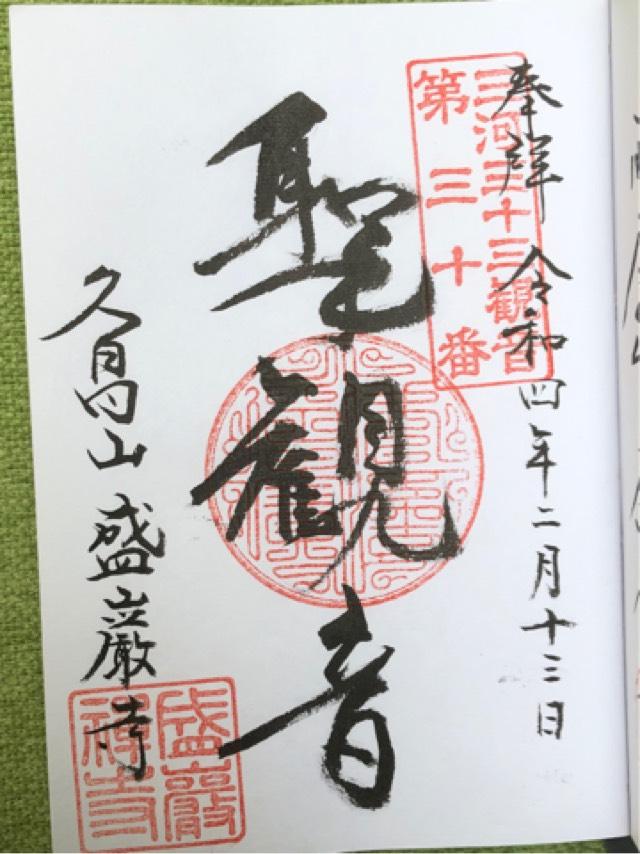 奉拝 令和四年二月十三日
三河三十三観音
第三十番
聖観音
久昌山 盛巌寺
盛巌
禅寺